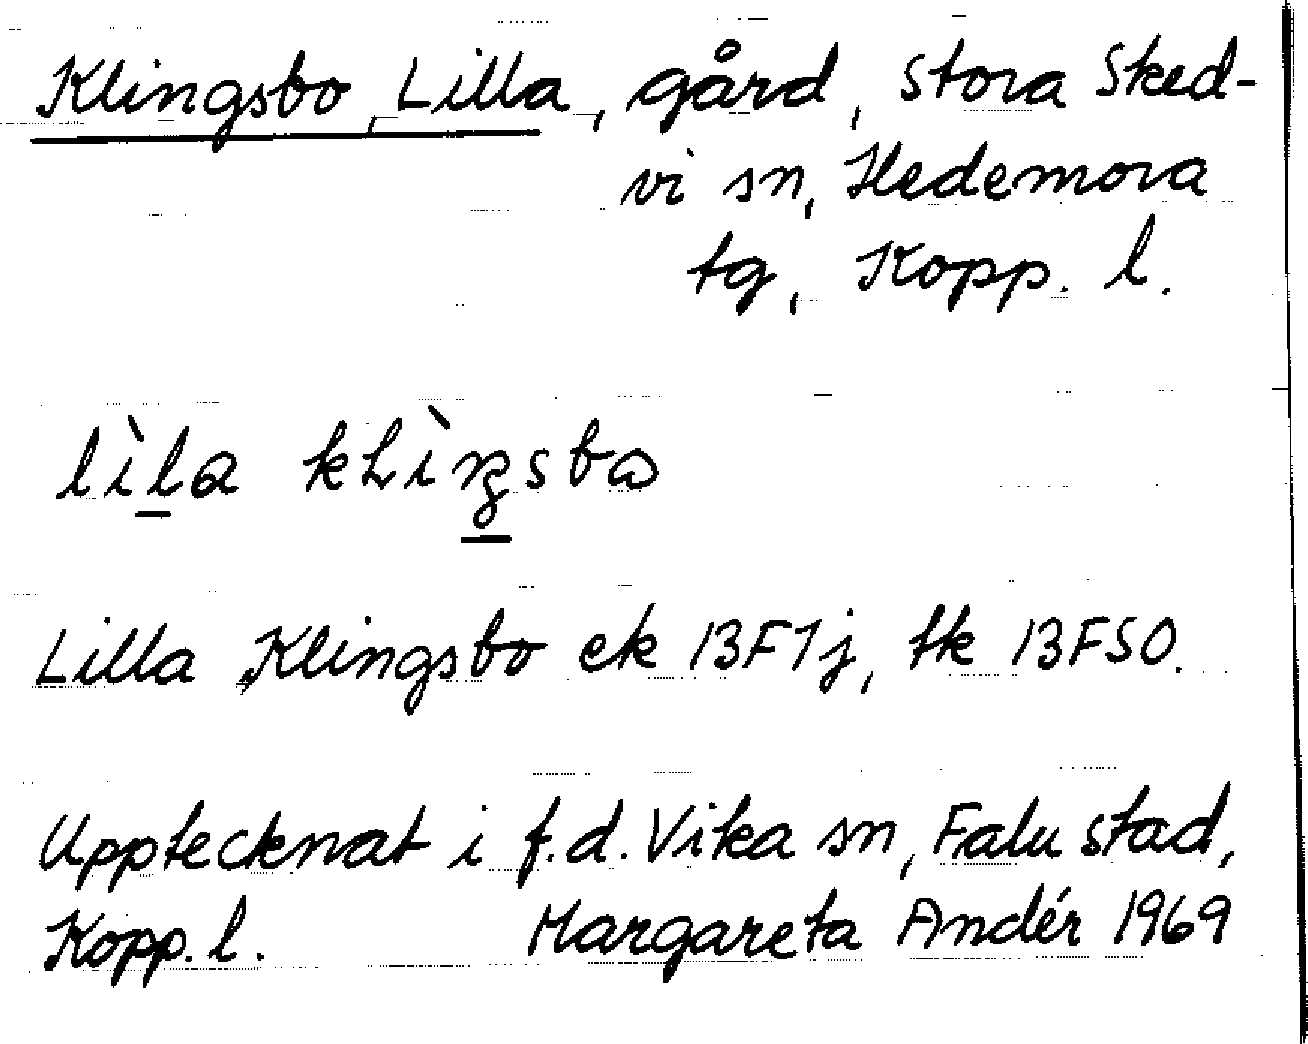 Klingsbo, Lilla, gård, Stora Sked-
vi sn, Hedemora
tg, Kopp. l.
lìla kLìŋsbɷ
Lilla Klingsbo ek 13F1j, tk 13FSO.
Upptecknat i f.d. Vika sn, Falu stad,
Kopp. l. Margareta Andér 1969